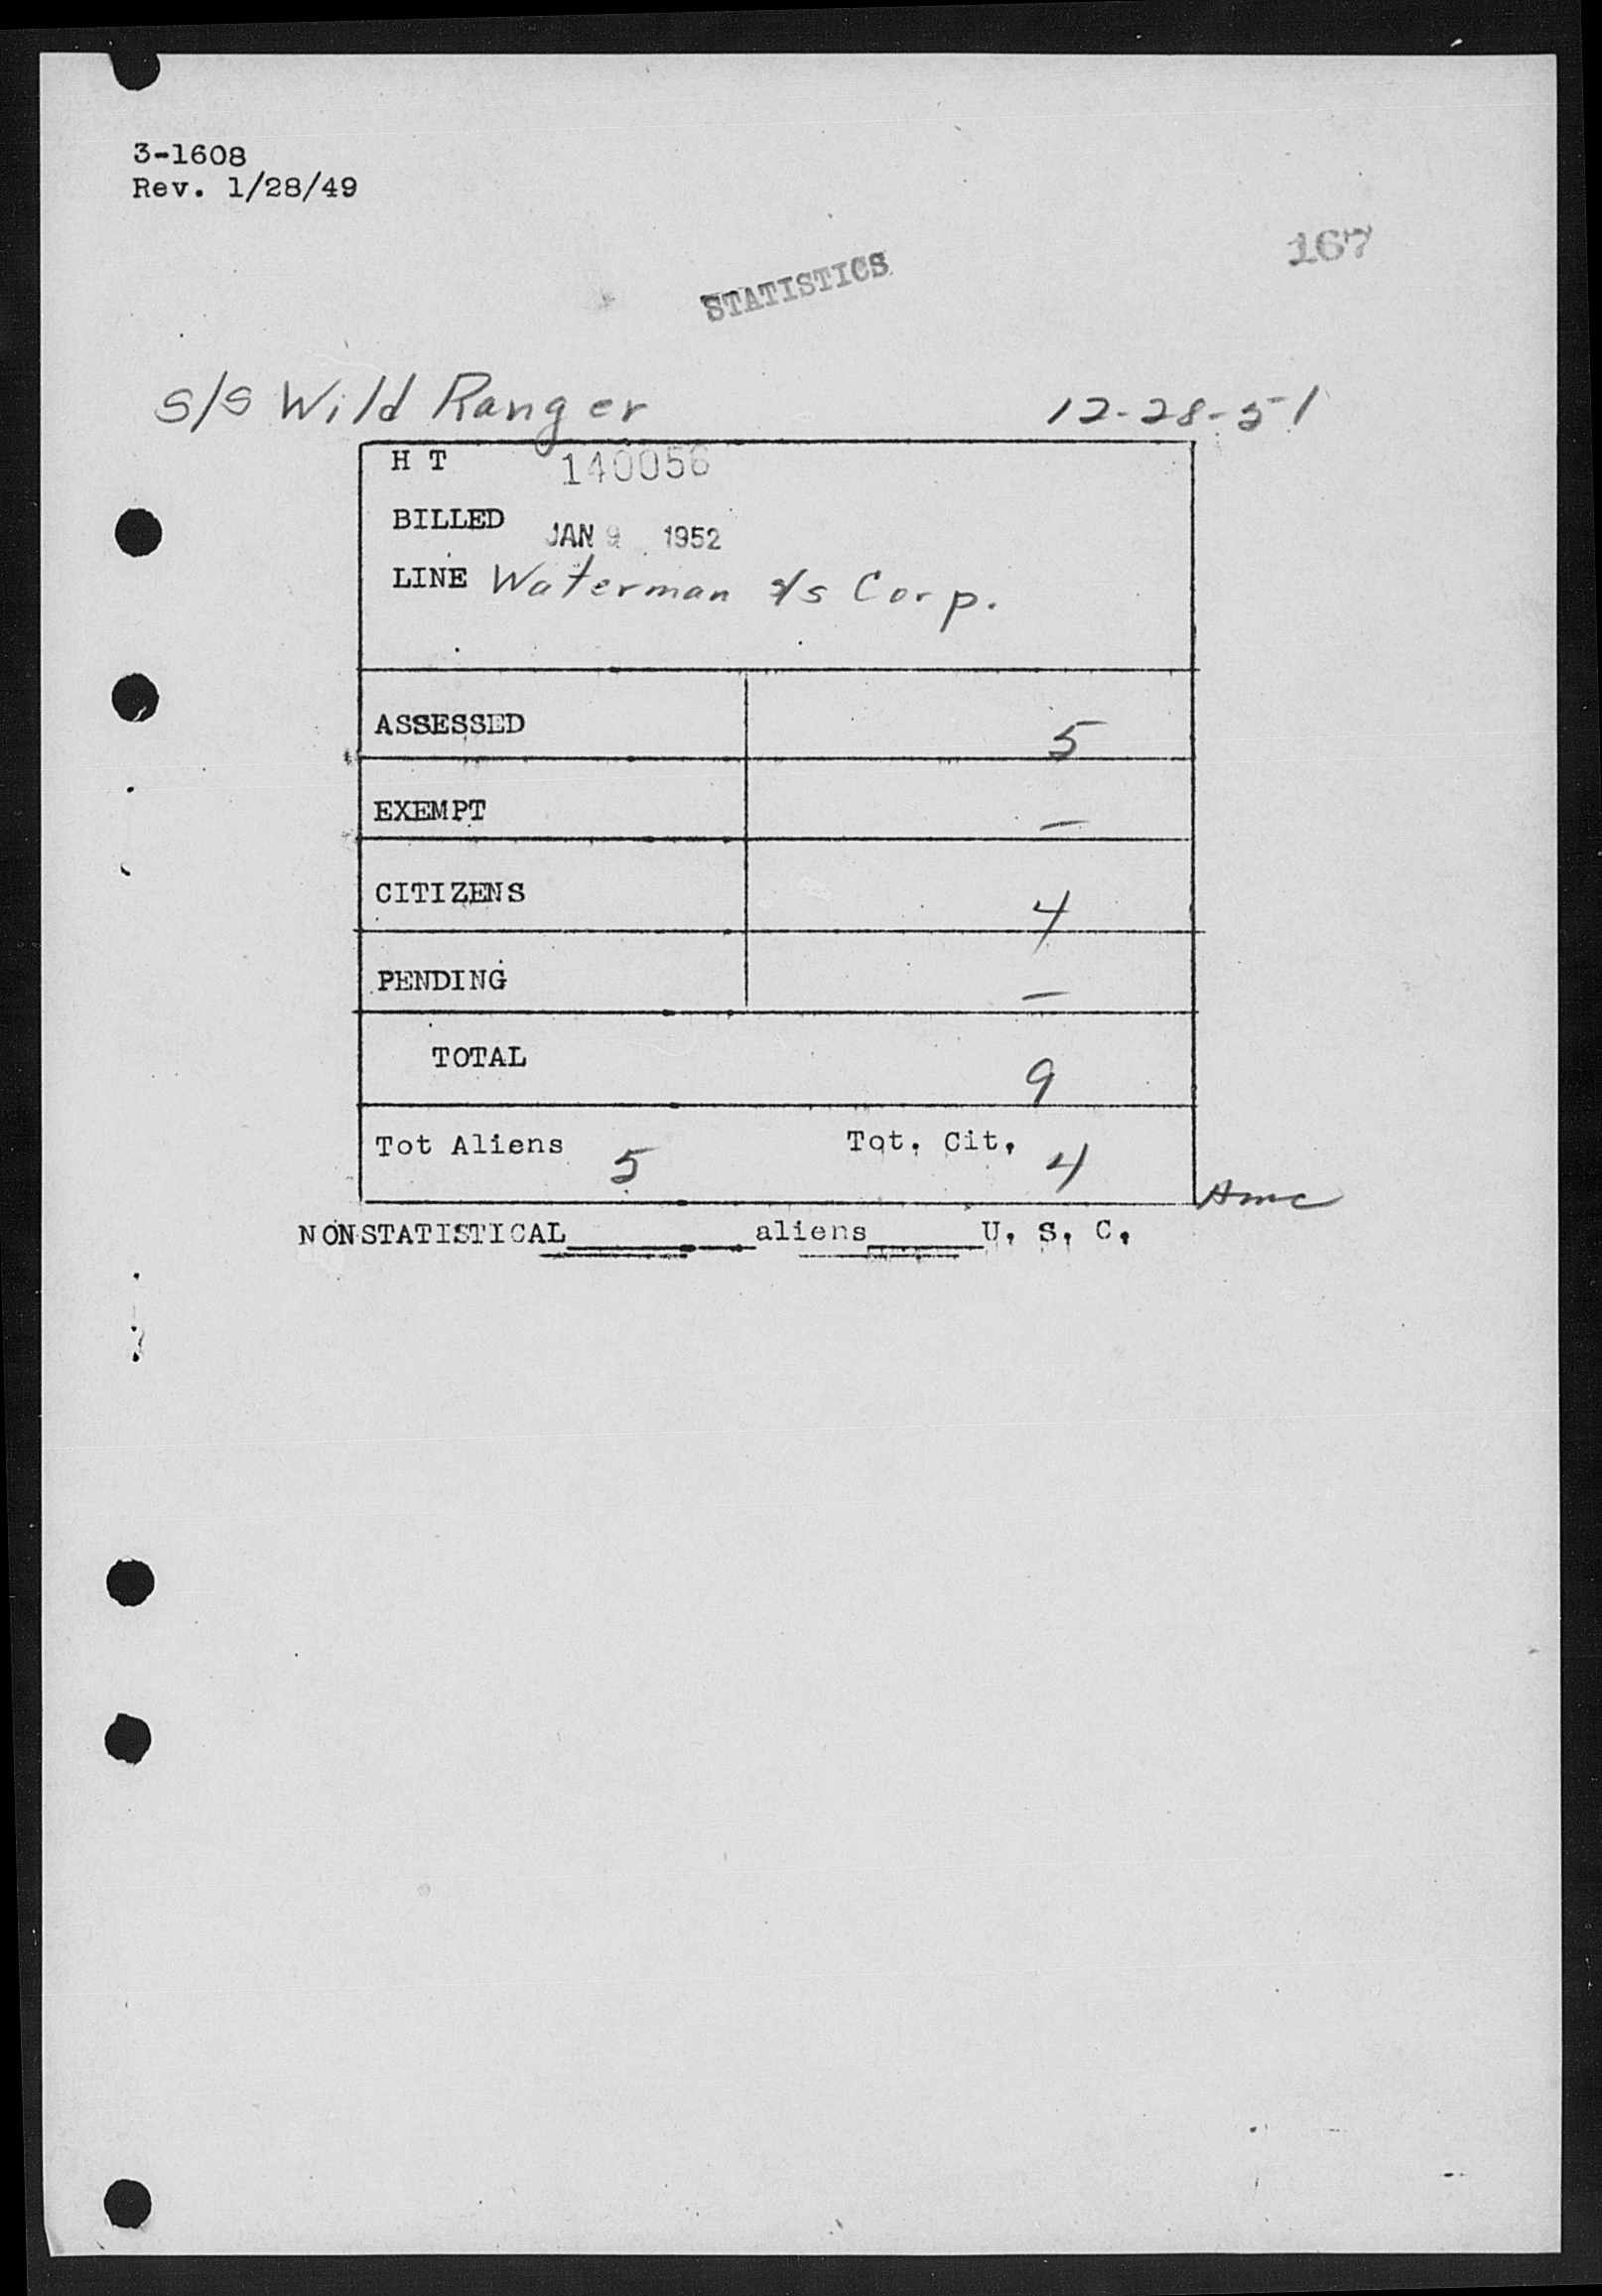 3-1608
Rev. 1/28/49
167
STATISTICS
S/S Wild Ranger 12-28-51
H T 140056
BILLED JAN 9 1952
LINE Waterman S/S Corp.
ASSESSED 5
EXEMPT —
CITIZENS 4
PENDING —
TOTAL 9
Tot Aliens 5 Tot. Cit. 4
Amc
NONSTATISTICAL______aliens______U. S. C.